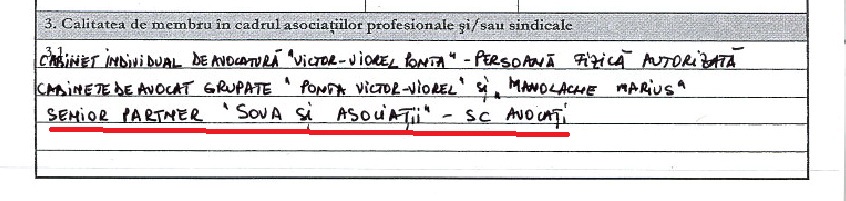 3. Calitatea de membru în cadrul asociaţiilor profesionale şi/sau sindicale
3.1
CABINET INDIVIDUAL DE AVOCATURĂ "VICTOR-VIOREL PONTA" - PERSOANĂ FIZICĂ AUTORIZATĂ
CABINETE DE AVOCAT GRUPATE "PONTA VICTOR-VIOREL" ŞI "MANOLACHE MARIUS"
SENIOR PARTNER "SOVA SI ASOCIAŢII" - SC AVOCAŢI